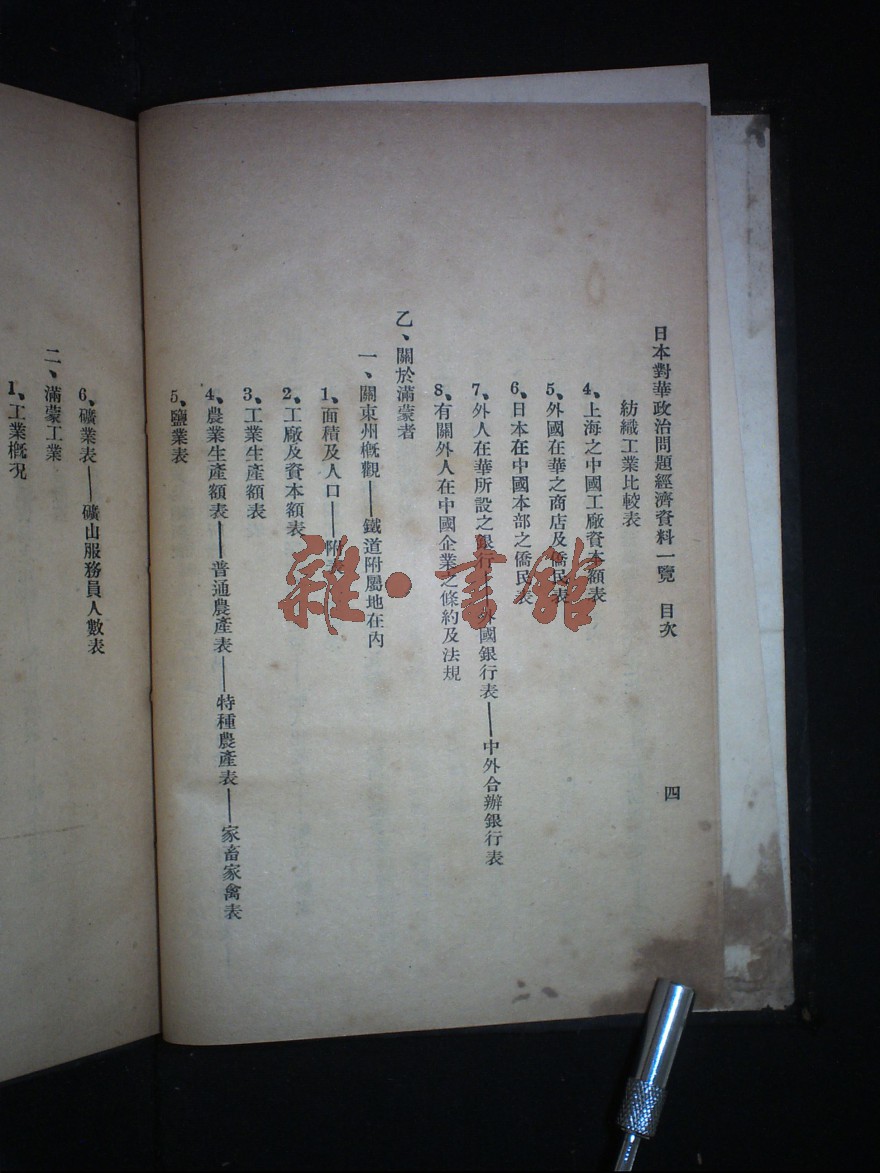 日本對華政治問題經濟資料一覽　目次　四
紡織工業比較表
4、上海之中國工廠資本額表
5、外國在華之商店及僑民表
6、日本在中國本部之僑民表
7、外人在華所設之銀行——外國銀行表——中外合辦銀行表
8、有關外人在中國企業之條約及法規
乙、關於滿蒙者
一、關東州概觀——鐵道附屬地在內
1、面積及人口——附表
2、工廠及資本額表
3、工業生產額表
4、農業生產額表——普通農產表——特種農產表——家畜家禽表
5、鹽業表
6、礦業表——礦山服務員人數表
二、滿蒙工業
1、工業概況
雜·書館